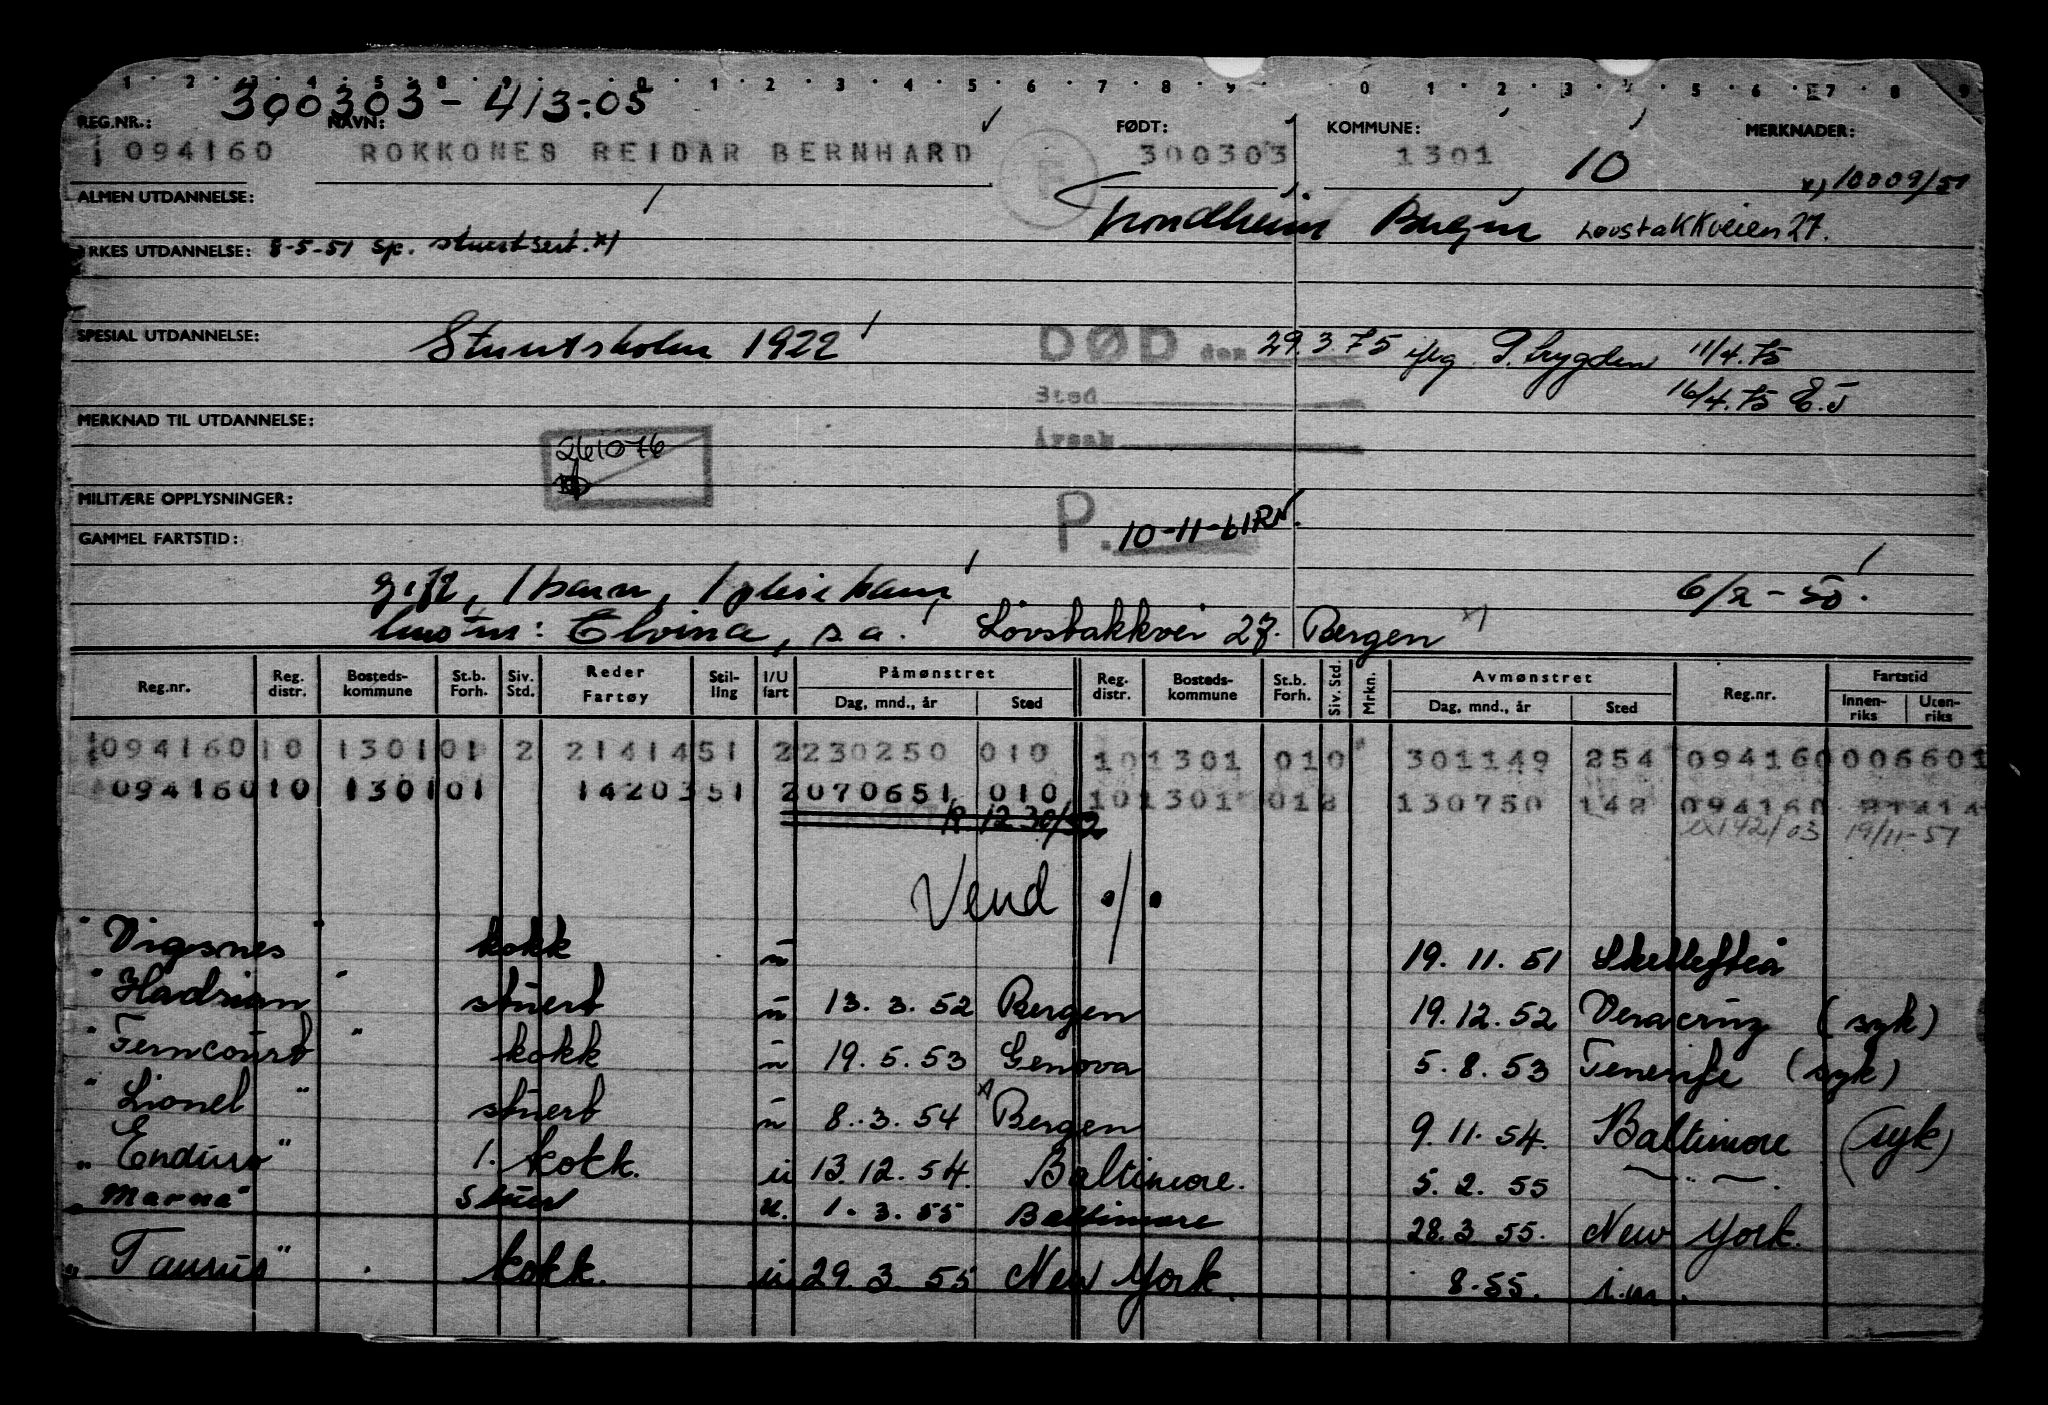 1 2 3 4 5 8 9 0 1 2 3 4 5 6 7 8 9 0 1 2 3 4 5 6 7 8 9
300303-413-05
REG.NR.: NAVN: FØDT: KOMMUNE: MERKNADER:
094160 ROKKONES REIDAR BERNHARD 300303 1301 10
x) 10009/51
ALMEN UTDANNELSE: Trondheim Bergen Løvstakkveien 27.
YRKES UTDANNELSE: 8-5-51 Sp. stuertsert. x)
SPESIAL UTDANNELSE: Stuertskolen 1922
DØD den 29.3.75 iflg. P. trygden 11/4.75
Sted 16/4.75 E.J
MERKNAD TIL UTDANNELSE: Årsak
261076
MILITÆRE OPPLYSNINGER:
P. 10-11-61 RN.
GAMMEL FARTSTID:
gift, 1 barn, 1 pleiebarn 6/2-50.
hustru: Elvina, s.a. Løvstakkvei 27. Bergen x)
Reg.nr. Reg. distr. Bosteds- kommune St.b. Forh. Siv. Std. Reder Fartøy Stil- ling I/U fart Påmønstret Dag, mnd., år Sted Reg. distr. Bosteds- kommune St.b. Forh. Siv. Std. Mrkn. Avmønstret Dag, mnd., år Sted Reg.nr. Fartstid Innen- riks Uten- riks
094160 10 1301 01 2 21414 51 2 230250 010 10 1301 010 301149 254 094160 006601
094160 10 1301 01 14203 51 2 070651 010 10 1301 012 130750 142 094160 21414
12 30/52 142/03 19/11-51
Vend ./.
"Vigsnes" kokk u 19.11.51 Skellefteå
"Hadrian" stuert u 13.3.52 Bergen 19.12.52 Veracruz (syk)
"Ferncourt" kokk u 19.5.53 Genova 5.8.53 Tenerife (syk)
"Lionel" stuert u 8.3.54 Bergen 9.11.54. Baltimore (syk)
"Enduro" 1. kokk. u 13.12.54. Baltimore. 5.2.55 — " —.
"Marna" Stuert u. 1.3.55 Baltimore 28.3 55. New York.
"Taurus" kokk. u 29.3 55 New York. 8-55. i.m.